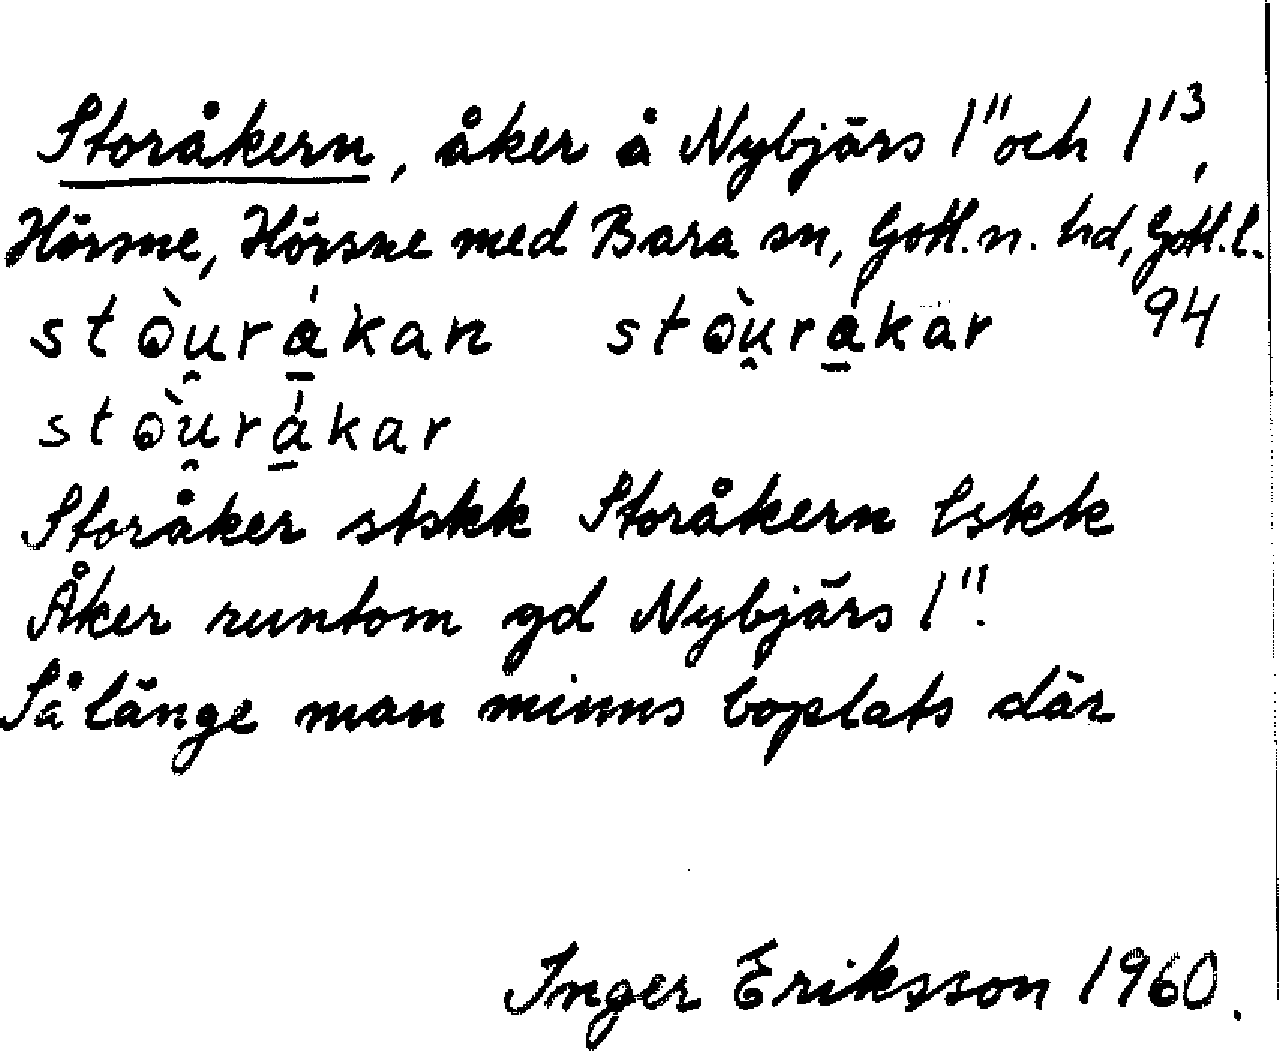 Storåkern, åker å Nybjärs 1¹¹ och 1¹³,
Hörsne, Hörsne med Bara sn, Gotl. n. hd, Gotl. l.
stòu̯rá̱kan stòu̯rá̱kar 94
stòu̯rá̱kar
Storåker stskk Storåkern lskk
Åker runtom gd Nybjärs 1¹¹.
Så länge man minns boplats där
Inger Eriksson 1960.